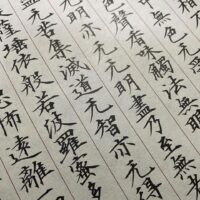 中無色无
聲香味觸法無
明亦无无明盡乃至無老
无苦集滅道无智亦无得
薩埵依般若波羅蜜多
恐怖遠離一